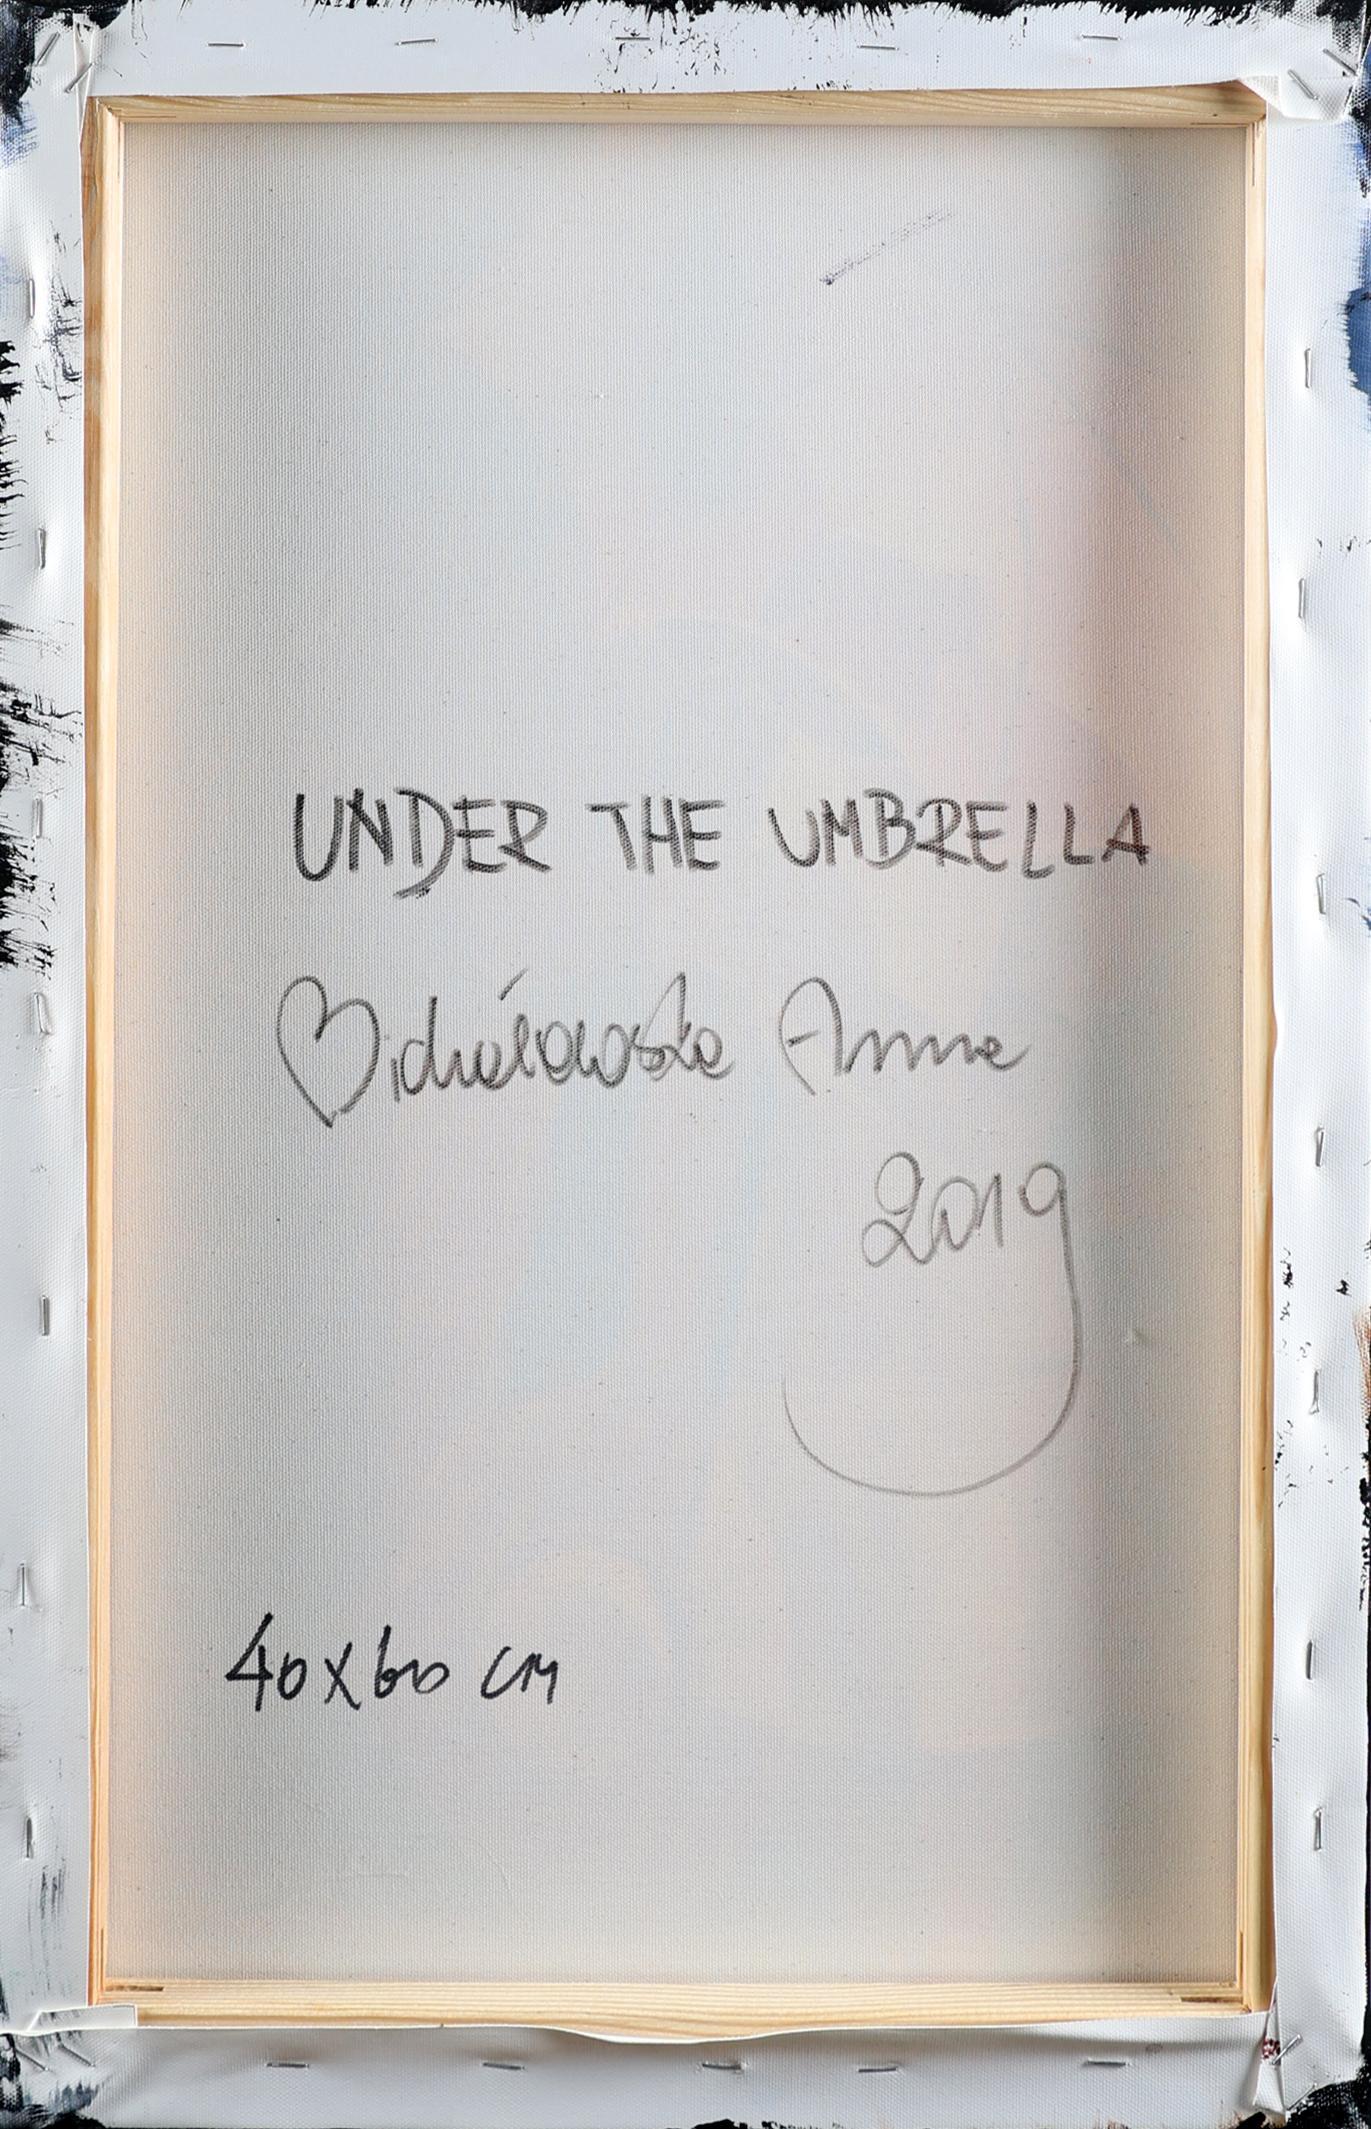 UNDER THE UMBRELLA
Michałowska Anna
2019
40x60 cm